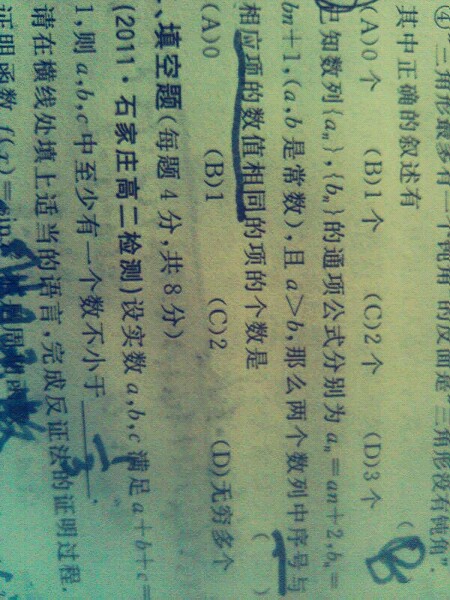 ④“三角形最多有一个钝角”的反面是“三角形没有钝角”.
其中正确的叙述有 ( B )
(A)0个 (B)1个 (C)2个 (D)3个
已知数列{aₙ},{bₙ}的通项公式分别为aₙ=an+2,bₙ=
bn+1,(a,b是常数),且a>b,那么两个数列中序号与
相应项的数值相同的项的个数是 ( )
(A)0 (B)1 (C)2 (D)无穷多个
、填空题(每题4分,共8分)
(2011·石家庄高二检测)设实数a,b,c满足a+b+c=
1,则a,b,c中至少有一个数不小于 1/3 .
请在横线处填上适当的语言,完成反证法的证明过程.
证明函数f(x)=sin